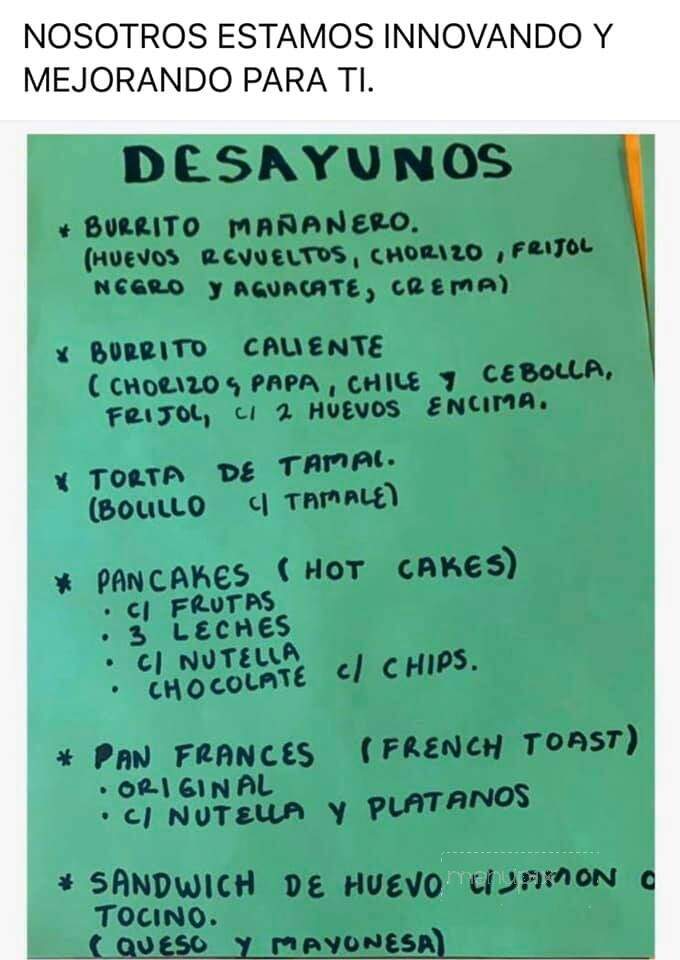 NOSOTROS ESTAMOS INNOVANDO Y
MEJORANDO PARA TI.
DESAYUNOS
* BURRITO MAÑANERO.
(HUEVOS REVUELTOS, CHORIZO, FRIJOL
NEGRO Y AGUACATE, CREMA)
* BURRITO CALIENTE
(CHORIZO Y PAPA, CHILE Y CEBOLLA,
FRIJOL, c/ 2 HUEVOS ENCIMA.
* TORTA DE TAMAL.
(BOLILLO c/ TAMALE)
* PANCAKES (HOT CAKES)
• c/ FRUTAS
• 3 LECHES
• c/ NUTELLA
• CHOCOLATE c/ CHIPS.
* PAN FRANCES (FRENCH TOAST)
• ORIGINAL
• c/ NUTELLA Y PLATANOS
* SANDWICH DE HUEVO c/ JAMON O
TOCINO.
(QUESO Y MAYONESA)